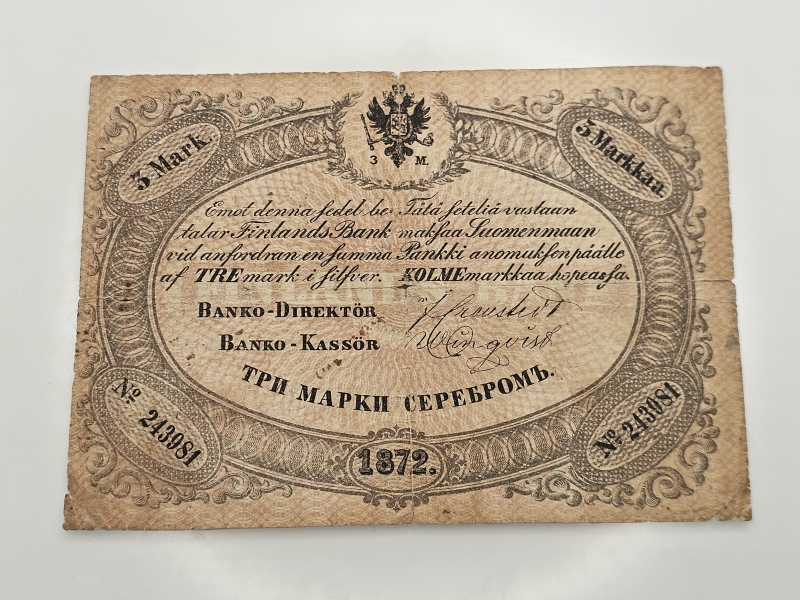 3 Mark
5 Markkaa
3 M.
Emot denna sedel be-
talar Finlands Bank
vid anfordran en summa
af TRE mark i silfver.
Tätä seteliä vastaan
maksaa Suomenmaan
Pankki anomuksen päälle
KOLME markkaa hopeassa.
BANKO-DIREKTÖR
BANKO-KASSÖR
ТРИ МАРКИ СЕРЕБРОМЪ.
No. 243981
No. 243981
1872.